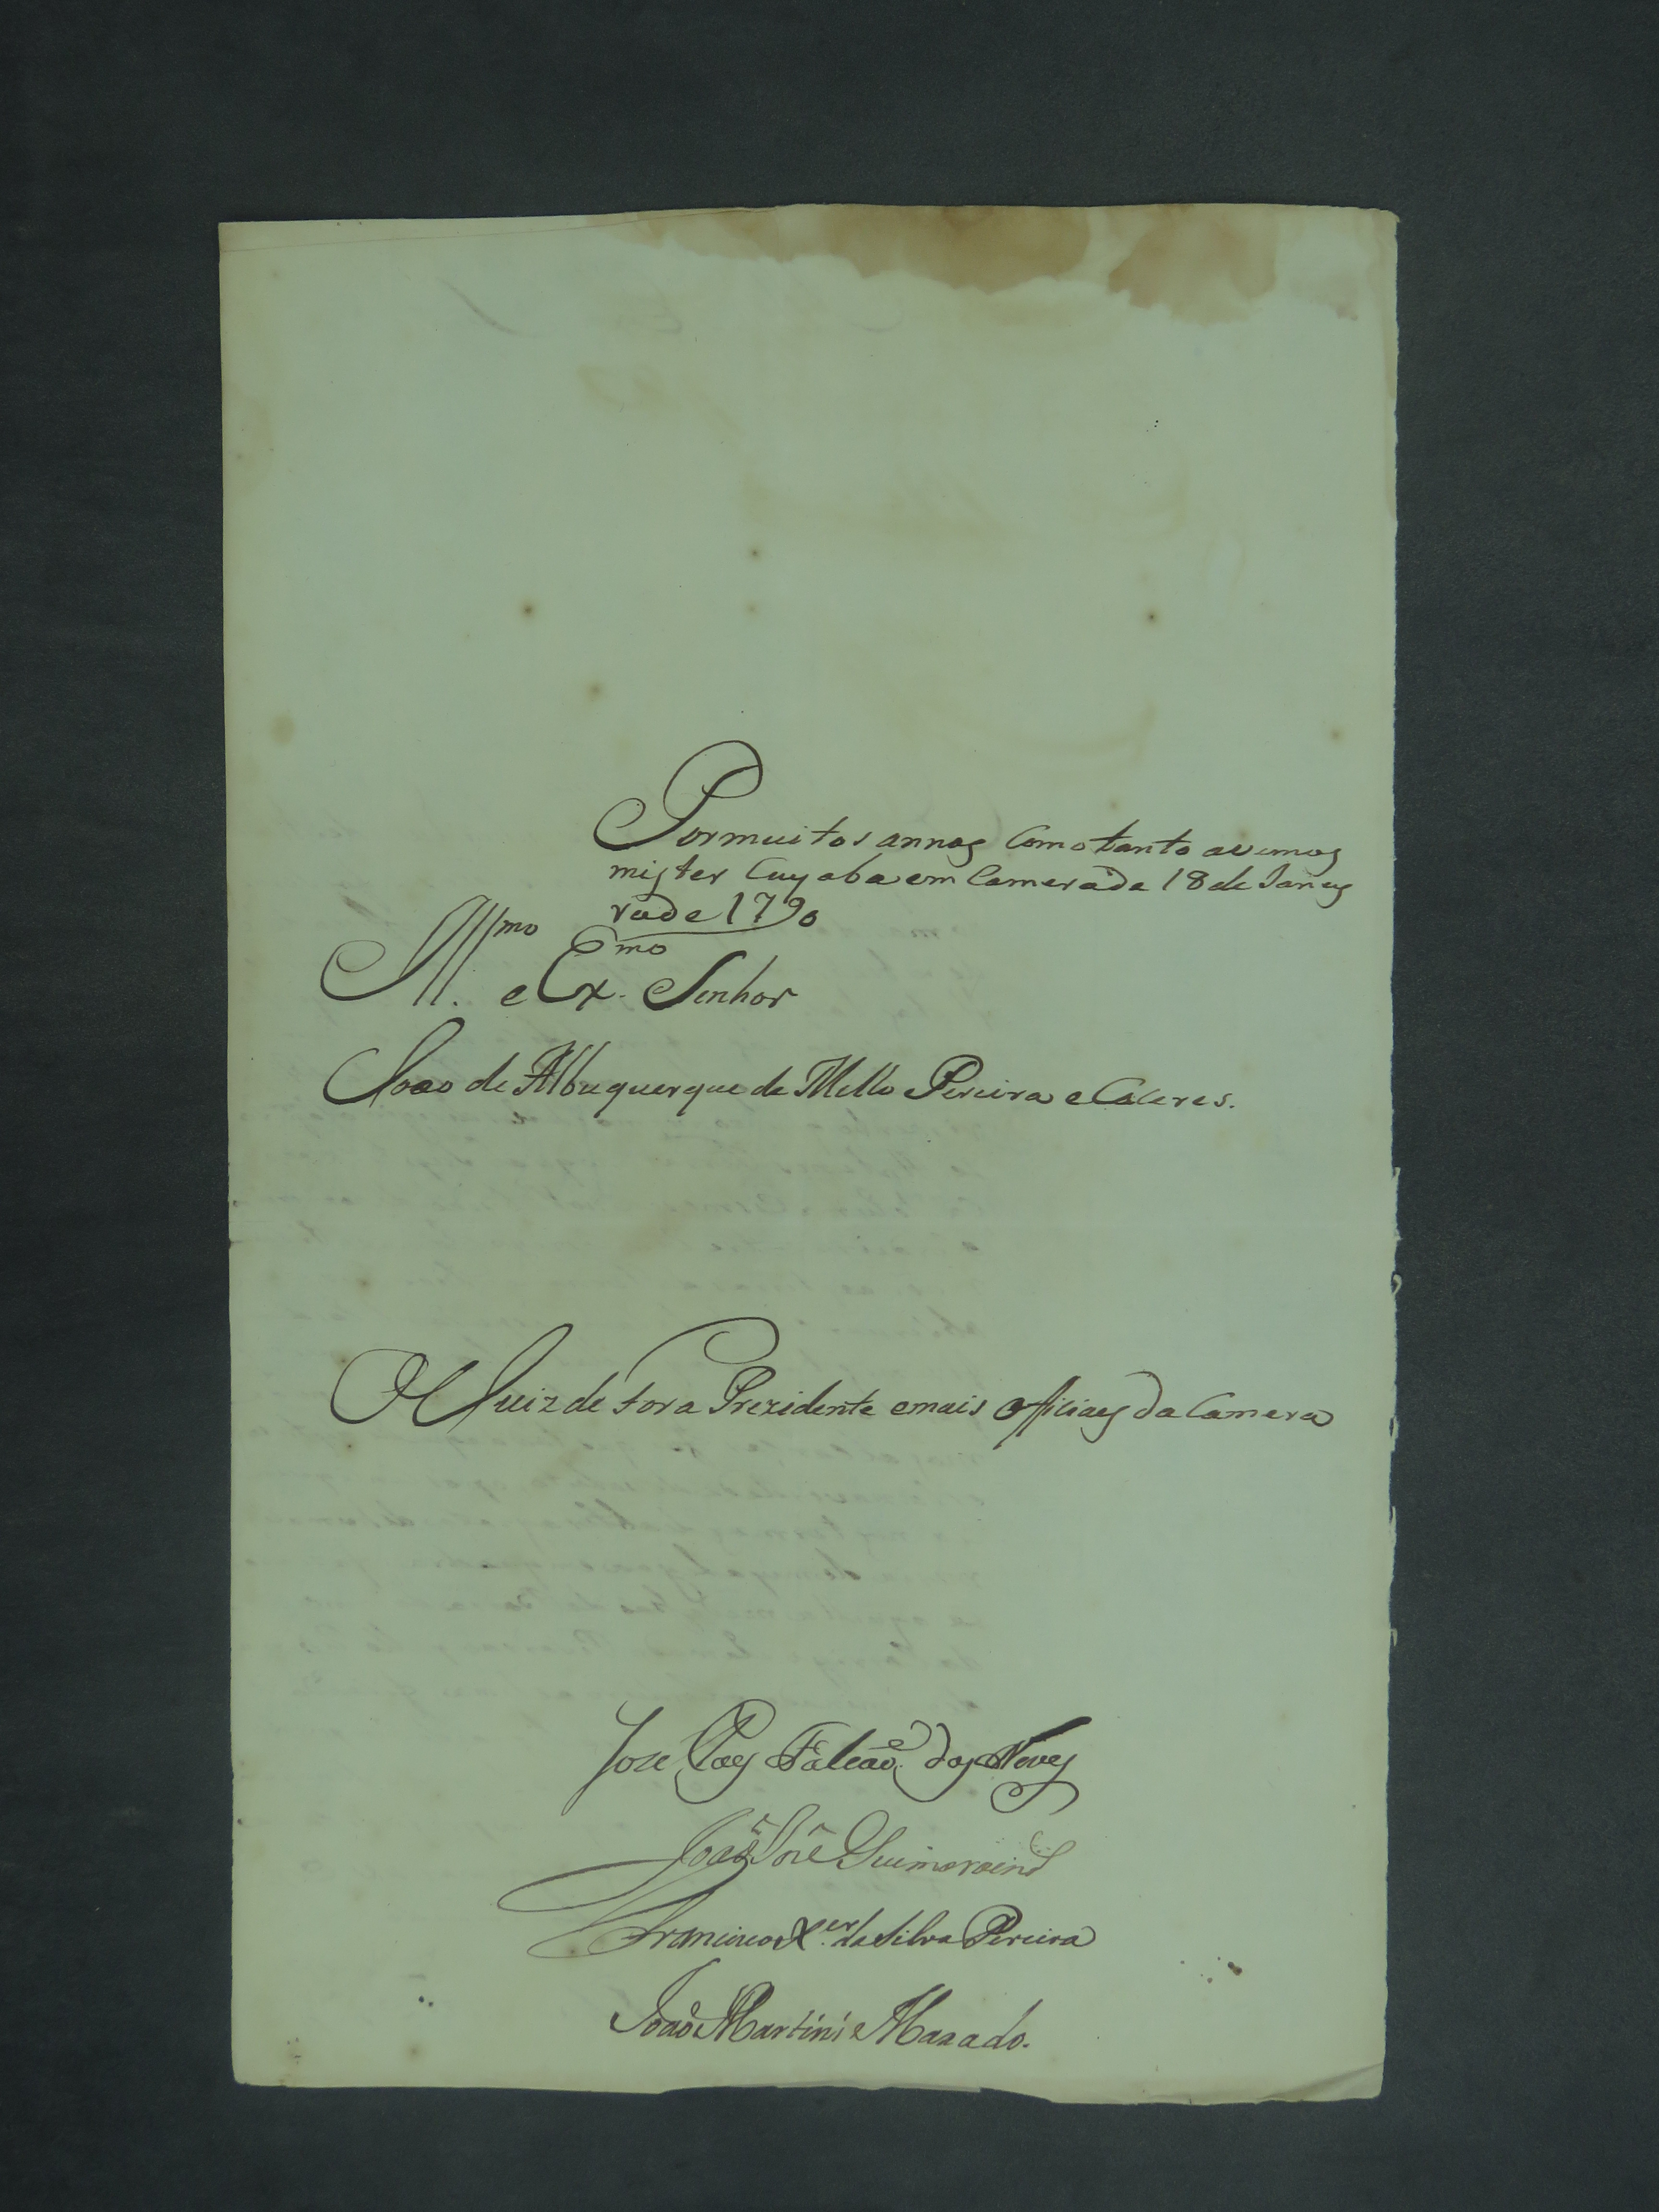 Por muitos annos Como tanto avemos
mister Cuyaba em Camera de 18 de Janey
ro de 1790
Ill.mo e Ex.mo Senhor
Joao de Albuquerque de Mello Pereira e Caceres.
O Juiz de fora Prezidente e mais officiaes da Camera
Joze Paes Falcaõ das Neves
Joaõ Joze Guimaraens
Francisco X.er da Silva Pereira
Joaõ Martins Mazado.